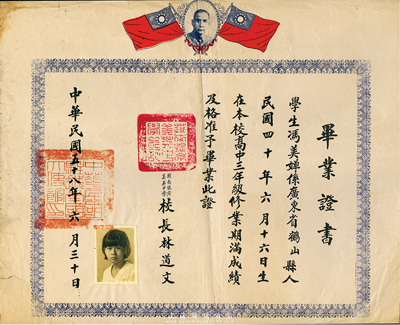 畢業證書
學生馮美嬋係廣東省鶴山縣人
民國四十年六月十六日生
在本校高中三年級修業期滿成績
及格准予畢業此證
校長林道文
中華民國五十八年六月三十日